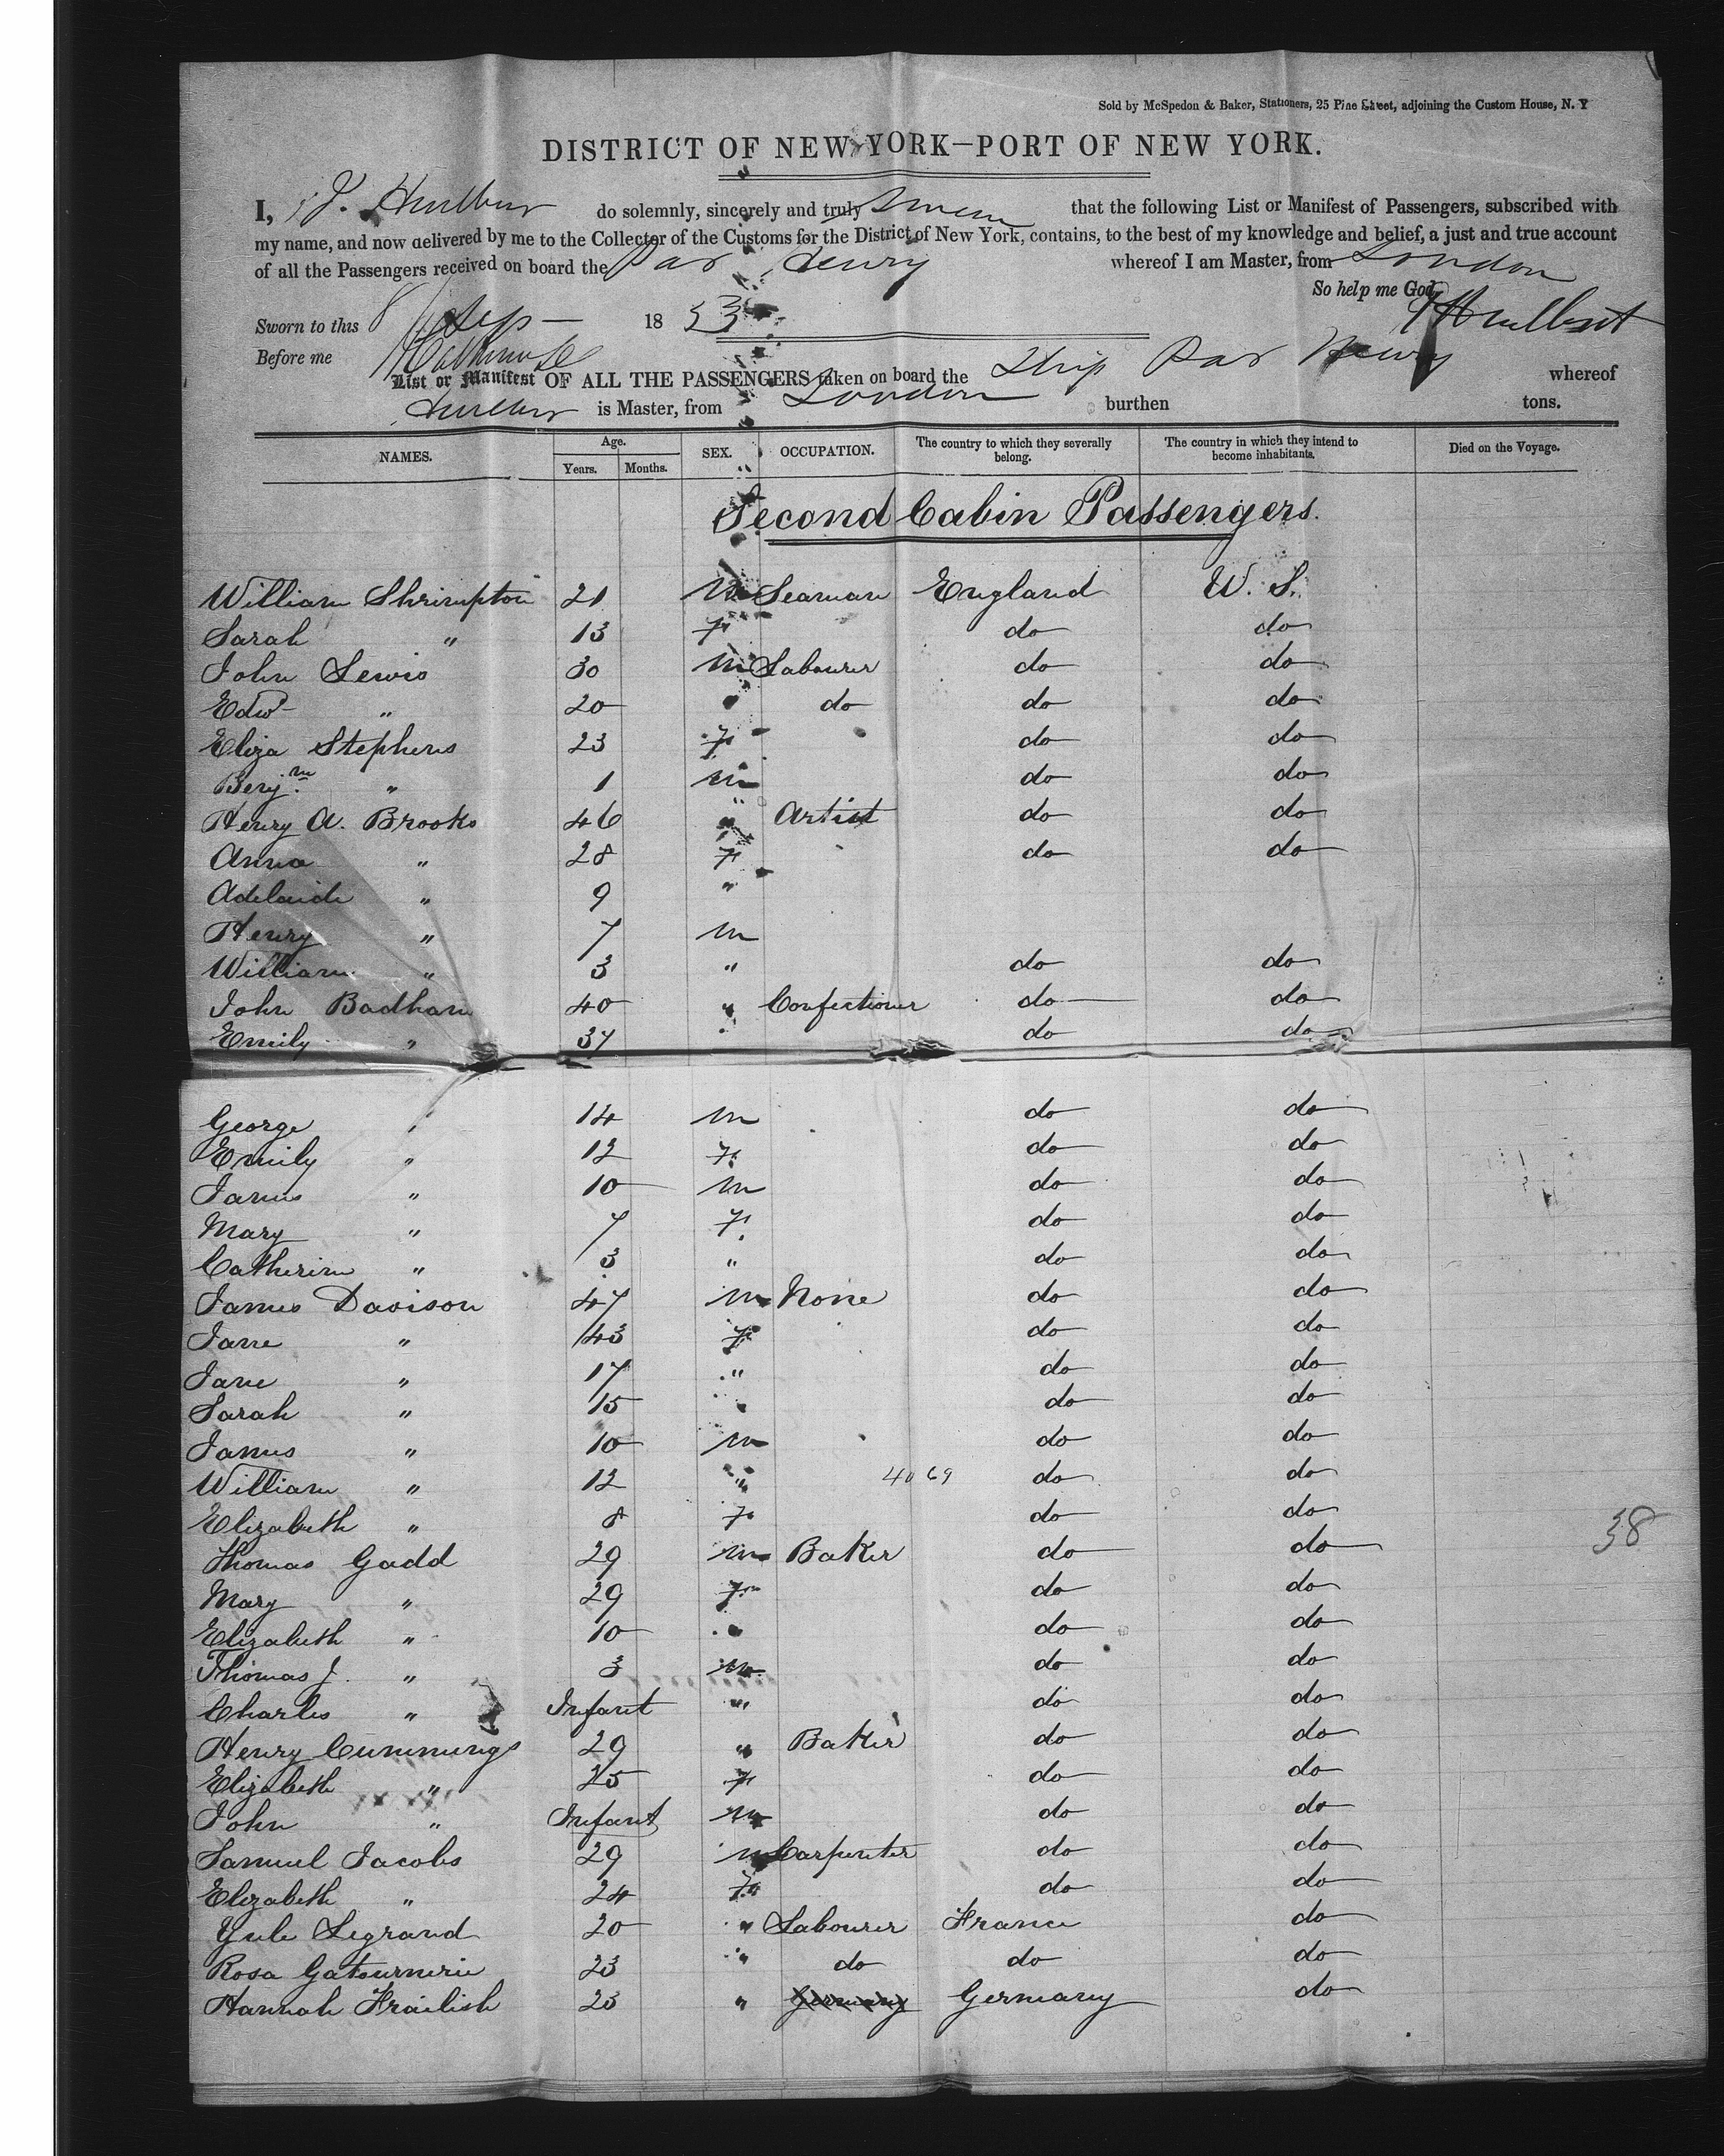 Sold by McSpedon & Baker, Stationers, 25 Pine Street, adjoining the Custom House, N. Y
DISTRICT OF NEW YORK—PORT OF NEW YORK.
I, J. Hurlbut do solemnly, sincerely and truly Swear that the following List or Manifest of Passengers, subscribed with
my name, and now delivered by me to the Collector of the Customs for the District of New York, contains, to the best of my knowledge and belief, a just and true account
of all the Passengers received on board the Henry whereof I am Master, from London
So help me God,
Sworn to this 8 Sep 1853 Hurlbut
Before me
List or Manifest OF ALL THE PASSENGERS taken on board the Ship Henry whereof
Hurlbut is Master, from London burthen tons.
NAMES. Age. Years. Months. SEX. OCCUPATION. The country to which they severally belong. The country in which they intend to become inhabitants. Died on the Voyage.
Second Cabin Passengers.
William Shrimpton 21 M Seaman England U. S.
Sarah " 13 F do do
John Lewis 30 M Labourer do do
Edwd " 20 " do do do
Eliza Stephens 23 F do do
Benjn. " 1 M do do
Henry A. Brooks 46 " Artist do do
Anna " 28 F do do
Adelaide " 9 "
Henry " 7 M
William " 3 " do do
John Badham 40 " Confectioner do do
Emily " 37 do do
George " 14 M do do
Emily " 12 F do do
James " 10 M do do
Mary " 7 F do do
Catherine " 3 " do do
James Davison 47 M None do do
Jane " 43 F do do
Jane " 17 " do do
Sarah " 15 " do do
James " 10 M do do
William " 12 " 4069 do do
Elizabeth " 8 F do do
38
Thomas Gadd 29 M Baker do do
Mary " 29 F do do
Elizabeth " 10 " do do
Thomas J. " 3 M do do
Charles " Infant " do do
Henry Cummings 29 " Baker do do
Elizabeth " 25 F do do
John " Infant M do do
Samuel Jacobs 29 M Carpenter do do
Elizabeth " 24 F do do
Yule Legrand 20 " Labourer France do
Rosa Gatournerie 23 " do do do
Hannah Frailish 23 " Germany Germany do